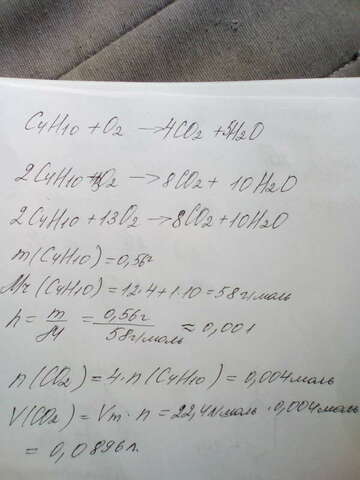 C4H10 + O2 → 4CO2 + 5H2O
2C4H10 + O2 → 8CO2 + 10H2O
2C4H10 + 13O2 → 8CO2 + 10H2O
m(C4H10) = 0,56г
Mч(C4H10) = 12·4+1·10 = 58г/моль
n = m/M = 0,56г/58г/моль ≈ 0,001
n(CO2) = 4·n(C4H10) = 0,004моль
V(CO2) = Vm·n = 22,4л/моль·0,004моль
= 0,0896л.